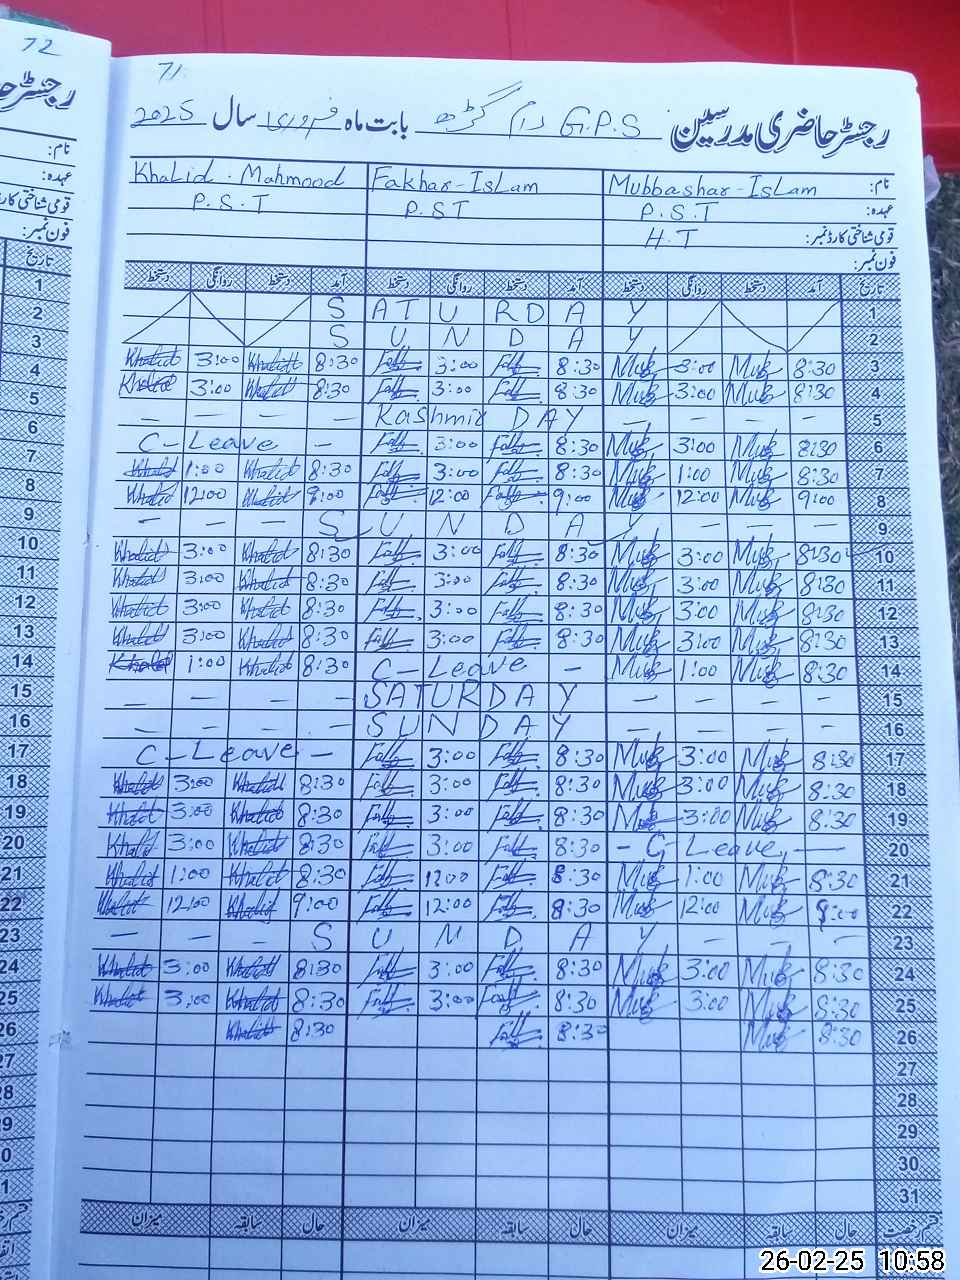 72
71
رجسٹر حاضری مدرسین G.P.S رام گڑھ بابت ماہ فروری سال 2025
نام: Mubbashar-Islam Fakhar-Islam Khalid. Mahmood
عہدہ: P.S.T P.S.T P.S.T
قومی شناختی کارڈ نمبر: H.T
فون نمبر:
تاریخ آمد دستخط روانگی دستخط آمد دستخط روانگی دستخط آمد دستخط روانگی دستخط
S A T U R D A Y 1
S U N D A Y 2
Khalid 3:00 Khalid 8:30 3:00 8:30 Mub 3:00 Mub 8:30 3
Khalid 3:00 Khalid 8:30 3:00 8:30 Mub 3:00 Mub 8:30 4
– – – – Kashmir DAY – – – – 5
C-Leave – 3:00 8:30 Mub 3:00 Mub 8:30 6
Khalid 1:00 Khalid 8:30 3:00 8:30 Mub 1:00 Mub 8:30 7
Khalid 12:00 Khalid 9:00 12:00 9:00 Mub 12:00 Mub 9:00 8
– – – S U N D A Y – – – 9
Khalid 3:00 Khalid 8:30 3:00 8:30 Mub 3:00 Mub 8:30 10
Khalid 3:00 Khalid 8:30 3:00 8:30 Mub 3:00 Mub 8:30 11
Khalid 3:00 Khalid 8:30 3:00 8:30 Mub 3:00 Mub 8:30 12
Khalid 3:00 Khalid 8:30 3:00 8:30 Mub 3:00 Mub 8:30 13
Khalid 1:00 Khalid 8:30 C-Leave – Mub 1:00 Mub 8:30 14
– – – – SATURDAY – – – – 15
– – – – SUNDAY – – – – 16
C-Leave – 3:00 8:30 Mub 3:00 Mub 8:30 17
Khalid 3:00 Khalid 8:30 3:00 8:30 Mub 3:00 Mub 8:30 18
Khalid 3:00 Khalid 8:30 3:00 8:30 Mub 3:00 Mub 8:30 19
Khalid 3:00 Khalid 8:30 3:00 8:30 - C-Leave, — 20
Khalid 1:00 Khalid 8:30 1200 8:30 Mub 1:00 Mub 8:30 21
Khalid 12:00 Khalid 9:00 12:00 8:30 Mub 12:00 Mub 9:00 22
– – – S U N D A Y – – – 23
Khalid 3:00 Khalid 8:30 3:00 8:30 Mub 3:00 Mub 8:30 24
Khalid 3:00 Khalid 8:30 3:00 8:30 Mub 3:00 Mub 8:30 25
Khalid 8:30 8:30 Mub 8:30 26
27
28
29
30
31
قسم رخصت حال سابقہ میزان حال سابقہ میزان حال سابقہ میزان
26-02-25 10:58